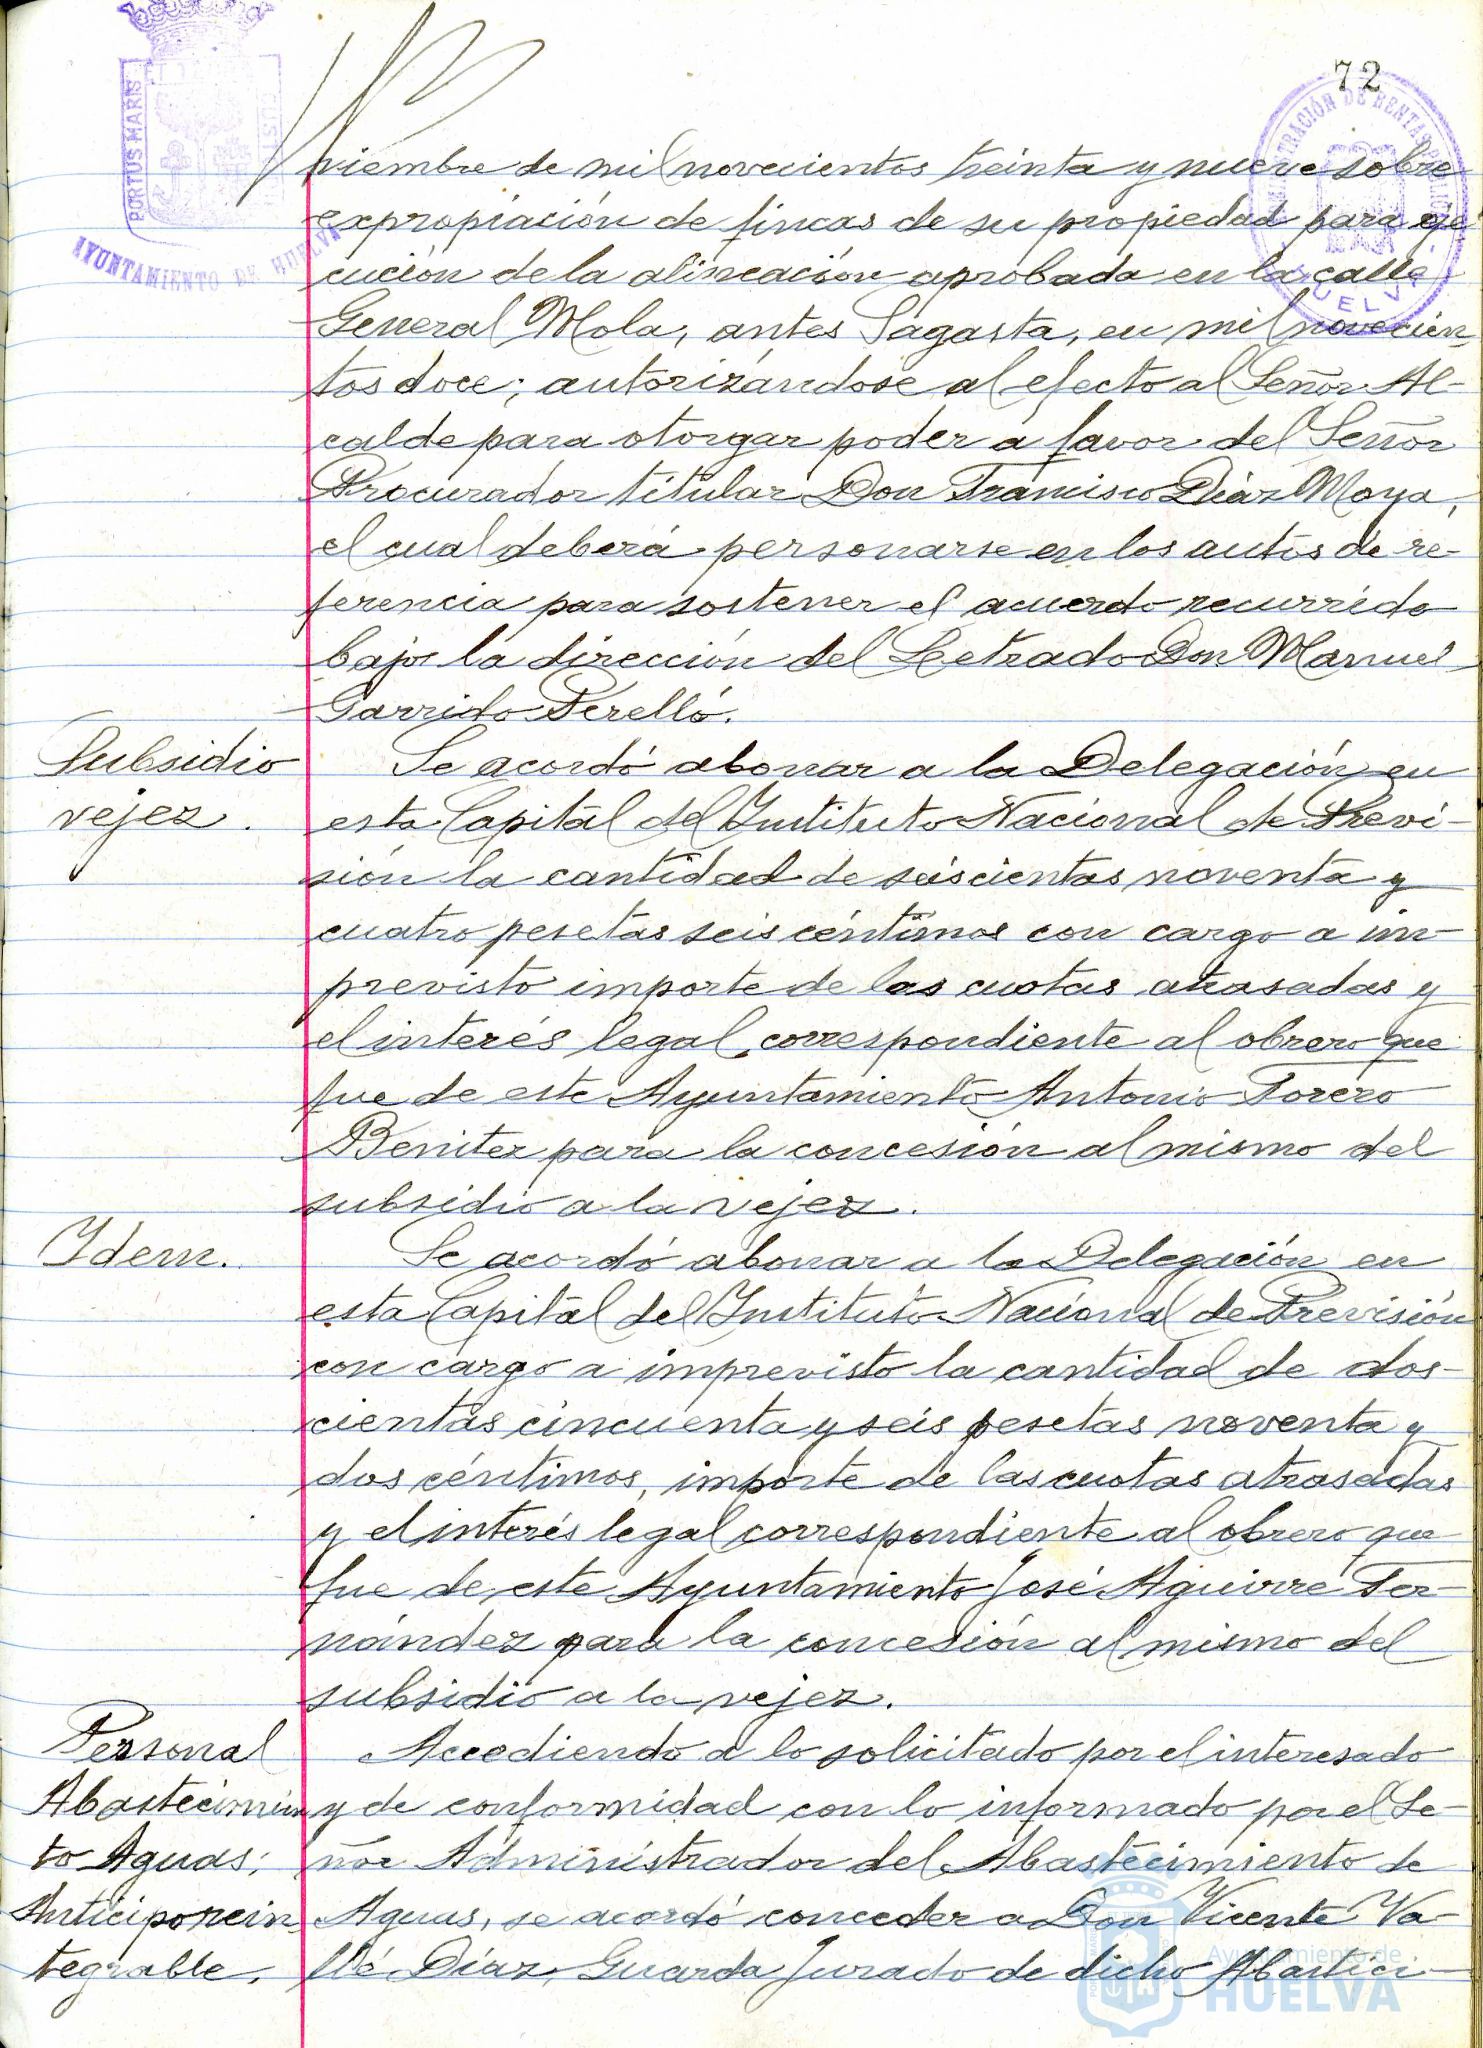 72
PORTUS MARIS
ET TERRE
CUSTODIA
AYUNTAMIENTO DE HUELVA
HUELVA
viembre de mil novecientos treinta y nueve sobre
expropiación de fincas de su propiedad para eje
cución de la alineación aprobada en la calle
General Mola, antes Sagasta, en mil novecien
tos doce; autorizándose al efecto al Señor Al-
calde para otorgar poder a favor del Señor
Procurador titular Don Francisco Díaz Moya,
el cual deberá personarse en los autos de re-
ferencia para sostener el acuerdo recurrido
bajo la dirección del Letrado Don Manuel
Garrido Perelló.
Subsidio
vejez.
Se acordó abonar a la Delegación en
esta Capital del Instituto Nacional de Previ-
sión la cantidad de seiscientas noventa y
cuatro pesetas seis céntimos con cargo a im-
previsto importe de las cuotas atrasadas y
el interés legal correspondiente al obrero que
fue de este Ayuntamiento Antonio Forero
Benitez para la concesión al mismo del
subsidio a la vejez.
Idem.
Se acordó abonar a la Delegación en
esta Capital del Instituto Nacional de Previsión
con cargo a imprevisto la cantidad de dos-
cientas cincuenta y seis pesetas noventa y
dos céntimos, importe de las cuotas atrasadas
y el interés legal correspondiente al obrero que
fue de este Ayuntamiento José Aguirre Fer-
nández para la concesión al mismo del
subsidio a la vejez.
Personal
Abastecimien
to Aguas;
Anticipo rein
tegrable.
Accediendo a lo solicitado por el interesado
y de conformidad con lo informado por el Se-
ñor Administrador del Abastecimiento de
Aguas, se acordó conceder a Don Vicente Va-
llé Díaz, Guarda Jurado de dicho Abasteci-
Ayuntamiento de
HUELVA